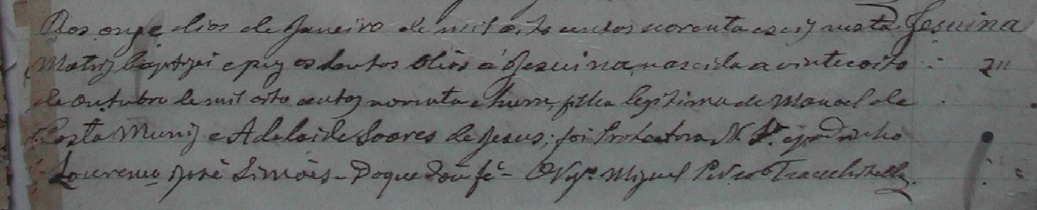 Aos onze dias de Janeiro de mil oito centos noventa e seis nesta Jesuina
Matriz baptizei e puz os Santos Olios á Jesuina, nascida a vinte oito
de Outubro de mil oito centos noventa e hum, filha legitima de Manoel da
Costa Muniz e Adelaide Soares de Jesus; foi Protectora N. Srª e padrinho
Lourenço José Simões. Do que dou fé. O Vigrº Miguel Pedro